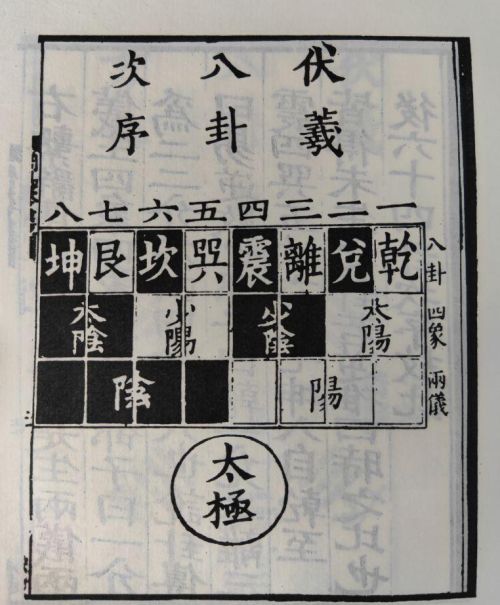 伏羲
八卦
次序
一二三四五六七八
八卦
乾兌離震巽坎艮坤
四象
太陽
少陰
少陽
太陰
兩儀
陽
陰
太極